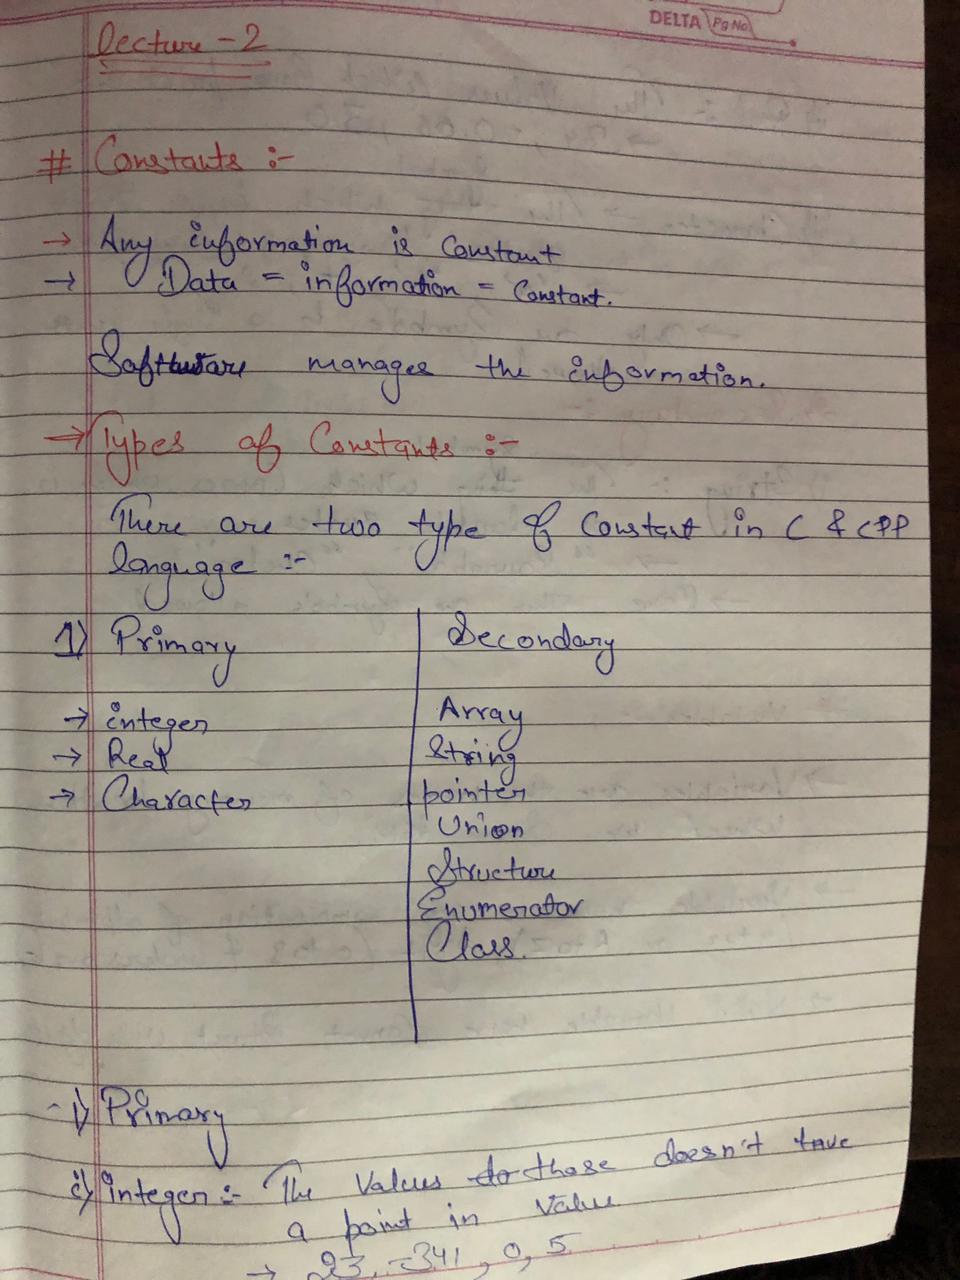 DELTA Pg No
Lecture - 2
# Constants :-
→ Any information is Constant
→ Data = information = Constant.
Software manages the information.
→ Types of Constants :-
There are two type of Constant in C & CPP
language :-
1) Primary Secondary
→ integer Array
→ Real String
→ Character pointer
Union
Structure
Enumerator
Class.
1) Primary
i) integer :- The Values those doesn't have
a point in Value
→ 23, -341, 0, 5